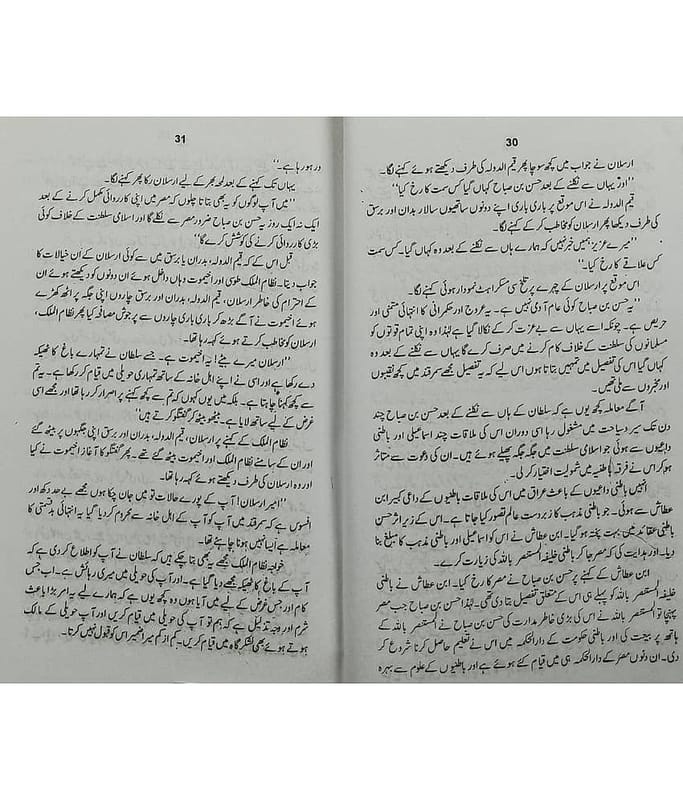 30
ارسلان نے جواب میں کچھ سوچا پھر قیم الدولہ کی طرف دیکھتے ہوئے کہنے لگا۔
"اور یہاں سے نکلنے کے بعد حسن بن صباح کہاں گیا کس سمت کا رخ کیا"
قیم الدولہ نے اس موقع پر باری باری اپنے دونوں ساتھیوں سالار بدران اور برسق
کی طرف دیکھا پھر ارسلان کو مخاطب کر کے کہنے لگا۔
"میرے عزیز ہمیں خبر نہیں کہ ہمارے ہاں سے نکلنے کے بعد وہ کہاں گیا۔ کس سمت
کس علاقے کا رخ کیا۔"
اس موقع پر ارسلان کے چہرے پر تلخ سی مسکراہٹ نمودار ہوئی کہنے لگا۔
"یہ حسن بن صباح کوئی عام آدمی نہیں ہے۔ یہ عروج اور حکمرانی کا انتہائی متمنی اور
حریص ہے۔ چونکہ اسے یہاں سے بے عزت کر کے نکالا گیا ہے لہٰذا وہ اپنی تمام قوتوں کو
مسلمانوں کی سلطنت کے خلاف کام کرنے میں صرف کرے گا یہاں سے نکلنے کے بعد وہ
کہاں گیا اس کی تفصیل میں تمہیں بتاتا ہوں اس لیے کہ یہ تفصیل مجھے سمرقند میں کچھ نقیبوں
اور مخبروں سے ملی تھیں۔
آگے معاملہ کچھ یوں ہے کہ سلطان کے ہاں سے نکلنے کے بعد حسن بن صباح چند
دن تک سیر و سیاحت میں مشغول رہا اسی دوران اس کی ملاقات چند اسماعیلی اور باطنی
داعیوں سے ہوئی جو اسلامی سلطنت میں جگہ جگہ پھیلے ہوئے ہیں۔ ان کی دعوت سے متاثر
ہو کر اس نے فرقہ باطنیہ میں شمولیت اختیار کر لی۔
انہیں باطنی داعیوں کے باعث عراق میں اس کی ملاقات باطنیوں کے داعی کبیر ابن
عطاش سے ہوئی۔ جو باطنی مذہب کا زبردست عالم تصور کیا جاتا ہے۔ اس کے زیر اثر حسن
باطنی عقائد میں بہت پختہ ہو گیا۔ ابن عطاش نے اس کو اسماعیلی اور باطنی مذہب کا مبلغ بنا
دیا۔ اور ہدایت کی کہ مصر جا کر باطنی خلیفہ المستنصر باللہ کی زیارت کرے۔
ابن عطاش کے کہنے پر حسن بن صباح نے مصر کا رخ کیا۔ ابن عطاش نے باطنی
خلیفہ المستنصر باللہ کو پہلے ہی اس کے متعلق تفصیل بتا دی تھی۔ لہٰذا حسن بن صباح جب مصر
پہنچا تو المستنصر باللہ نے اس کی بڑی خاطر مدارت کی حسن بن صباح نے المستنصر باللہ کے
ہاتھ پر بیعت کی اور باطنی حکومت کے دارالحکمہ میں اس نے تعلیم حاصل کرنا شروع کر
دی۔ ان دنوں مصر کے دارالحکمہ ہی میں قیام کئے ہوئے ہے اور باطنیوں کے علوم سے بہرہ
31
ور ہو رہا ہے۔"
یہاں تک کہنے کے بعد لمحہ بھر کے لیے ارسلان رکا پھر کہنے لگا۔
"میں آپ لوگوں کو یہ بھی بتاتا چلوں کہ مصر میں اپنی کارروائی مکمل کرنے کے بعد
ایک نہ ایک روز یہ حسن بن صباح ضرور مصر سے نکلے گا اور اسلامی سلطنت کے خلاف کوئی
بڑی کارروائی کرنے کی کوشش کرے گا"
قبل اس کے کہ قیم الدولہ، بدران یا برسق میں سے کوئی ارسلان کے ان خیالات کا
جواب دیتا۔ نظام الملک طوسی اور انحیموت وہاں داخل ہوئے ان دونوں کو دیکھتے ہوئے ان
کے احترام کی خاطر ارسلان، قیم الدولہ، بدران اور برسق چاروں اپنی جگہ پر اٹھ کھڑے
ہوئے انحیموت نے آگے بڑھ کر باری باری چاروں سے پرجوش مصافحہ کیا پھر نظام الملک،
ارسلان کو مخاطب کرتے ہوئے کہہ رہا تھا۔
"ارسلان میرے بیٹے! یہ انحیموت ہے۔ جسے سلطان نے تمہارے باغ کا ٹھیکہ
دے رکھا ہے اور اسی نے اپنے اہل خانہ کے ساتھ تمہاری حویلی میں قیام کر رکھا ہے۔ یہ تم
سے کچھ کہنا چاہتا ہے۔ بلکہ میں یوں کہوں کہ تم سے کچھ کہنے پر اصرار کر رہا تھا اور مجھے اسی
غرض کے لیے ساتھ لایا ہے۔ بیٹھو بیٹھ کر گفتگو کرتے ہیں"
نظام الملک کے کہنے پر ارسلان، قیم الدولہ، بدران اور برسق اپنی جگہوں پر بیٹھ گئے
اور ان کے سامنے نظام الملک اور انحیموت بیٹھ گئے تھے۔ پھر گفتگو کا آغاز انحیموت نے کیا
اور وہ ارسلان کی طرف دیکھتے ہوئے کہہ رہا تھا۔
"امیر ارسلان! آپ کے پورے حالات تو میں جان چکا ہوں مجھے بے حد دکھ اور
افسوس ہے کہ سمرقند میں آپ کو آپ کے اہل خانہ سے محروم کر دیا گیا یہ انتہائی بدقسمتی کا
معاملہ ہے ایسا نہیں ہونا چاہئے تھا۔
خواجہ نظام الملک مجھے یہ بھی بتا چکے ہیں کہ سلطان نے آپ کو اطلاع کر دی ہے کہ
آپ کے باغ کا ٹھیکہ مجھے دیا گیا ہے۔ اور آپ کی حویلی میں میری رہائش ہے۔ اب جس
کام اور جس غرض کے لیے میں آیا ہوں وہ کچھ یوں ہے کہ ہمارے لیے یہ امر بڑا باعث
شرم اور وجہ تذلیل ہے کہ ہم تو آپ کی حویلی میں قیام کریں اور آپ حویلی کے مالک
ہوتے ہوئے بھی لشکر گاہ میں قیام کریں۔ کم از کم میرا ضمیر اس کو قبول نہیں کرتا۔